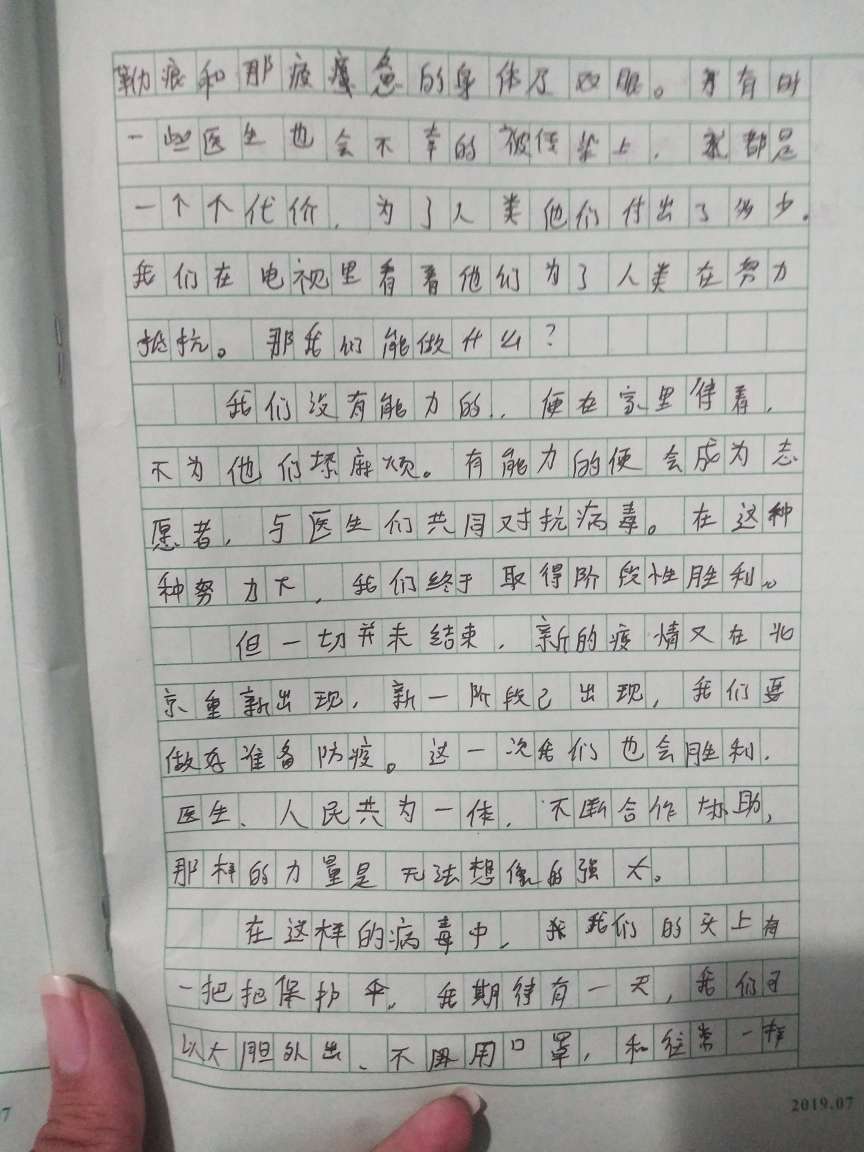 勒痕和那疲惫的身体及双眼。有的
一些医生也会不幸的被传染上，都是
一个个代价，为了人类他们付出了多少。
我们在电视里看着他们为了人类在努力
抵抗。那我们能做什么？
我们没有能力的，便在家里待着，
不为他们添麻烦。有能力的便会成为志
愿者，与医生们共同对抗病毒。在这种
种努力下，我们终于取得阶段性胜利。
但一切并未结束，新的疫情又在北
京重新出现，新一阶段已出现，我们要
做好准备防疫。这一次我们也会胜利，
医生、人民共为一体，不断合作协助，
那样的力量是无法想像的强大。
在这样的病毒中，我们的头上有
一把把保护伞。我期待有一天，我们可
以大胆外出、不再用口罩，和往常一样
7
2019.07